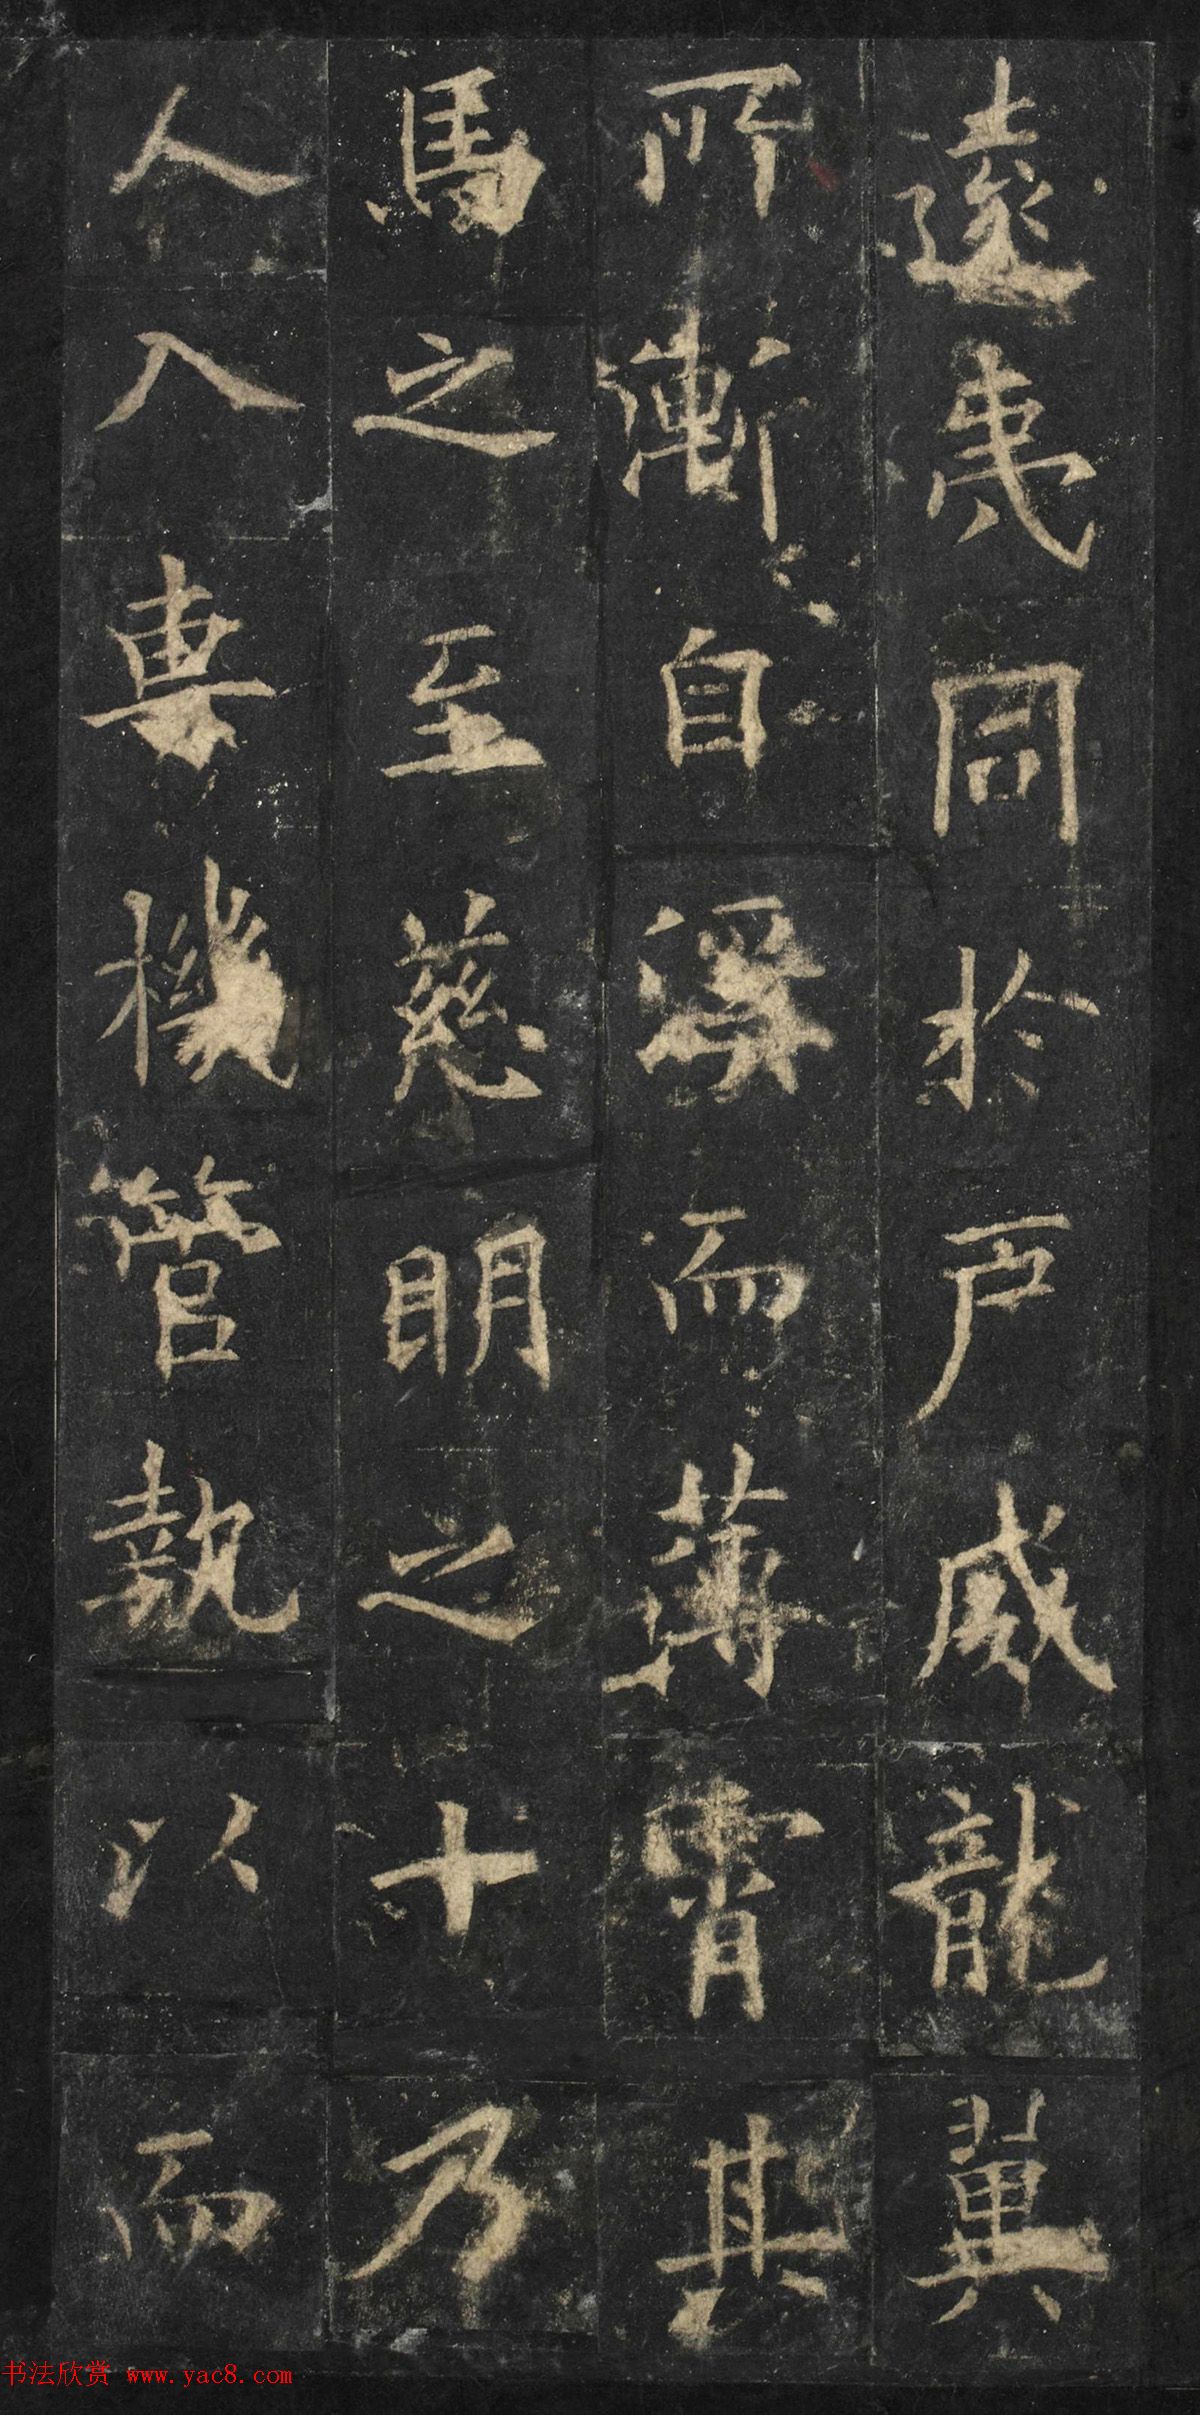 遠夷同於戶威龍冀
所漸自溪而薄霄其
馬之至慈明之十乃
人入專機管執以而
书法欣赏 www.yac8.com